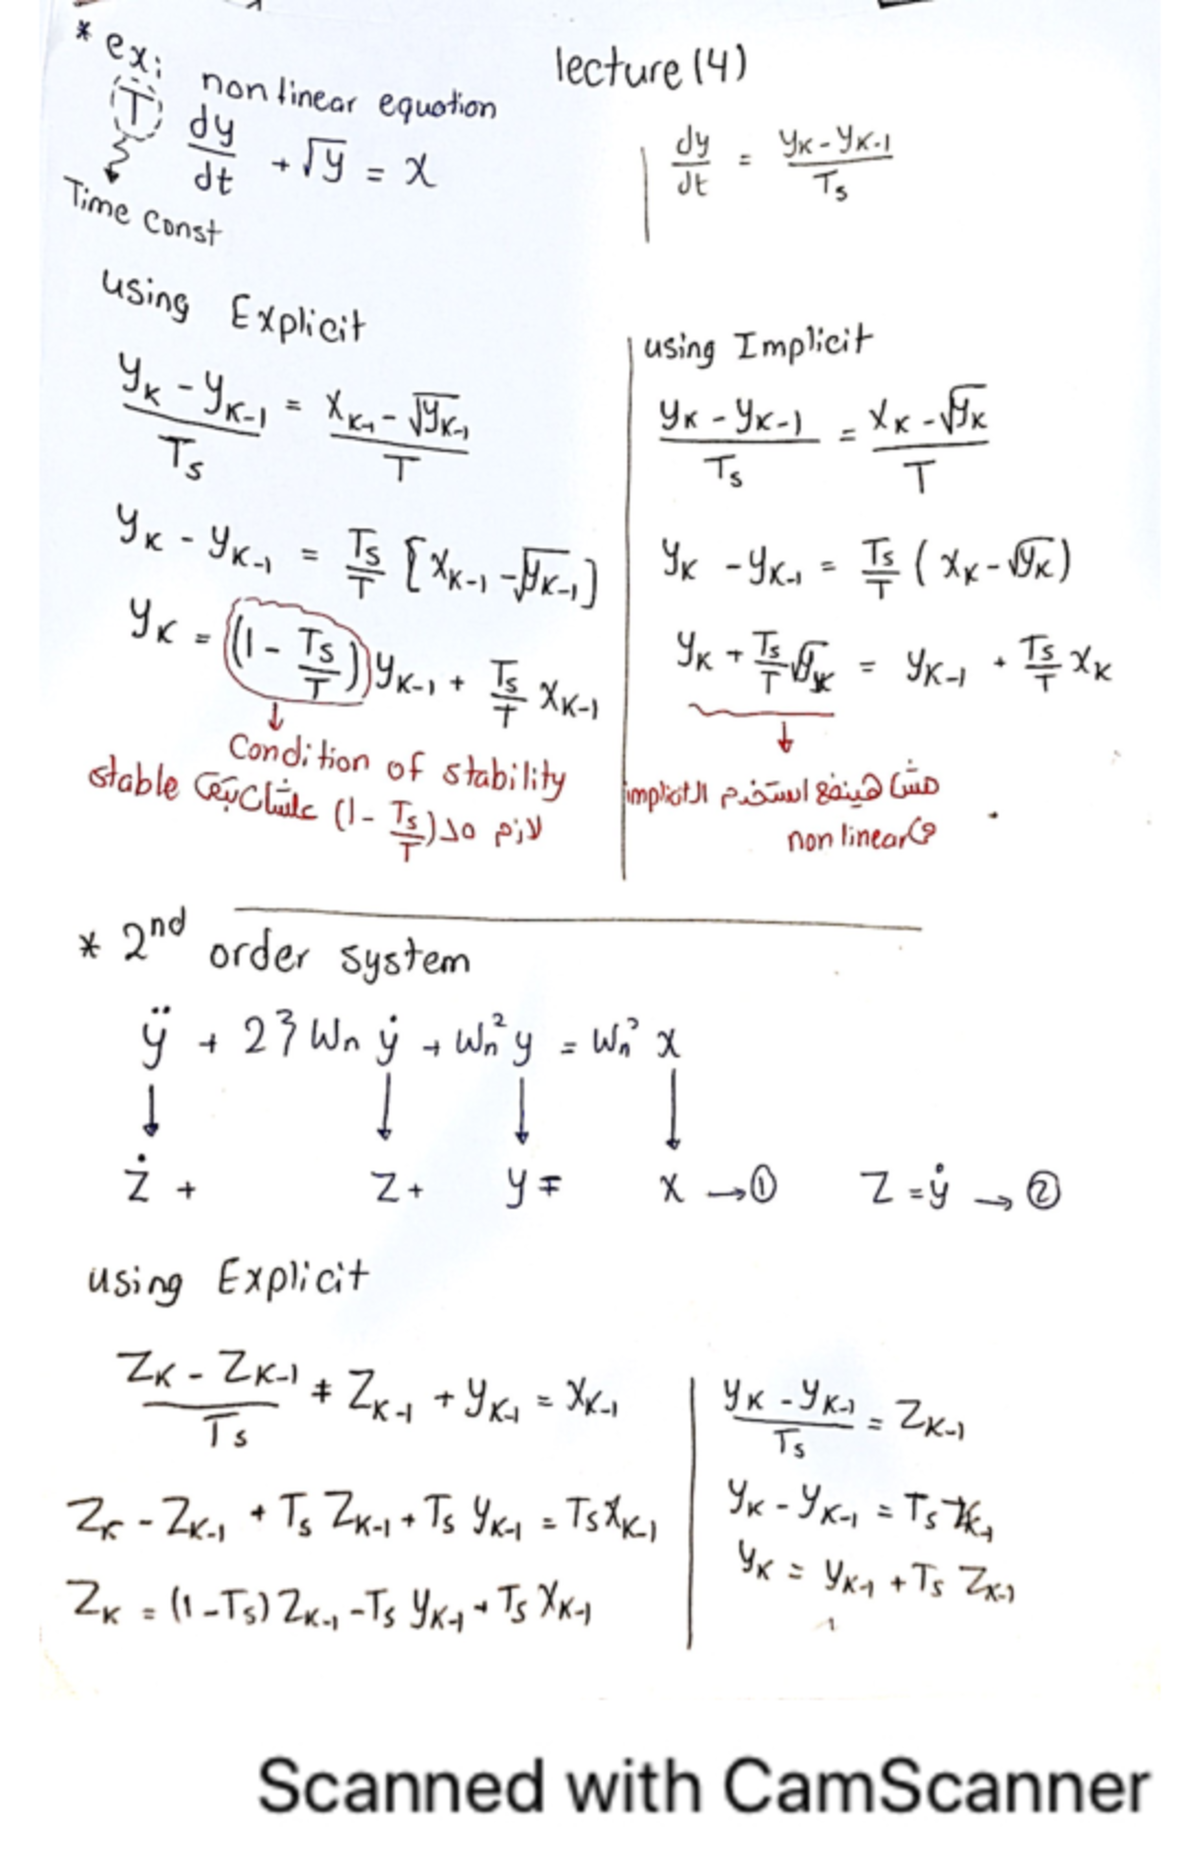 lecture (4)
* ex:
non linear equation
T dy/dt + √y = x
Time Const
dy/dt = (yK - yK-1)/Ts
using Explicit
(yK - yK-1)/Ts = (xK-1 - √yK-1)/T
yK - yK-1 = Ts/T [xK-1 - √yK-1]
yK = (1 - Ts/T) yK-1 + Ts/T xK-1
Condition of stability
لازم (1 - Ts/T) علشان stable
using Implicit
(yK - yK-1)/Ts = (xK - √yK)/T
yK - yK-1 = Ts/T (xK - √yK)
yK + Ts/T √yK = yK-1 + Ts/T xK
مش هينفع استخدم الـ implicit
في non linear
* 2nd order system
ÿ + 2ζ Wn ẏ + Wn² y = Wn² x
↓ ↓ ↓ ↓
ż + z + y = x → ① z = ẏ → ②
using Explicit
(ZK - ZK-1)/Ts + ZK-1 + yK-1 = xK-1
ZK - ZK-1 + Ts ZK-1 + Ts yK-1 = Ts xK-1
ZK = (1 - Ts) ZK-1 - Ts yK-1 + Ts xK-1
(yK - yK-1)/Ts = ZK-1
yK - yK-1 = Ts ZK-1
yK = yK-1 + Ts ZK-1
Scanned with CamScanner